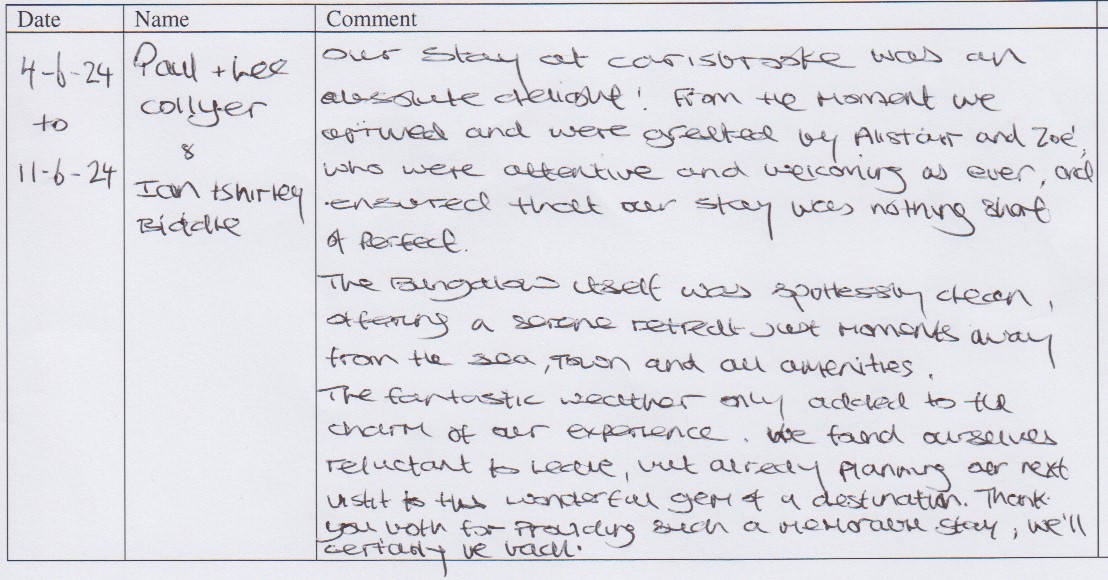 Date Name Comment
4-6-24
to
11-6-24
Paul + Lee
Collyer
&
Ian + Shirley
Biddle
Our stay at Carisbrooke was an
absolute delight! From the moment we
arrived and were greeted by Alistair and Zoé,
who were attentive and welcoming as ever, and
ensured that our stay was nothing short
of perfect.
The Bungalow itself was spotlessly clean,
offering a serene retreat just moments away
from the sea, Town and all amenities.
The fantastic weather only added to the
charm of our experience. We found ourselves
reluctant to leave, but already planning our next
visit to this wonderful gem of a destination. Thank
you both for providing such a memorable stay, we'll
certainly be back.